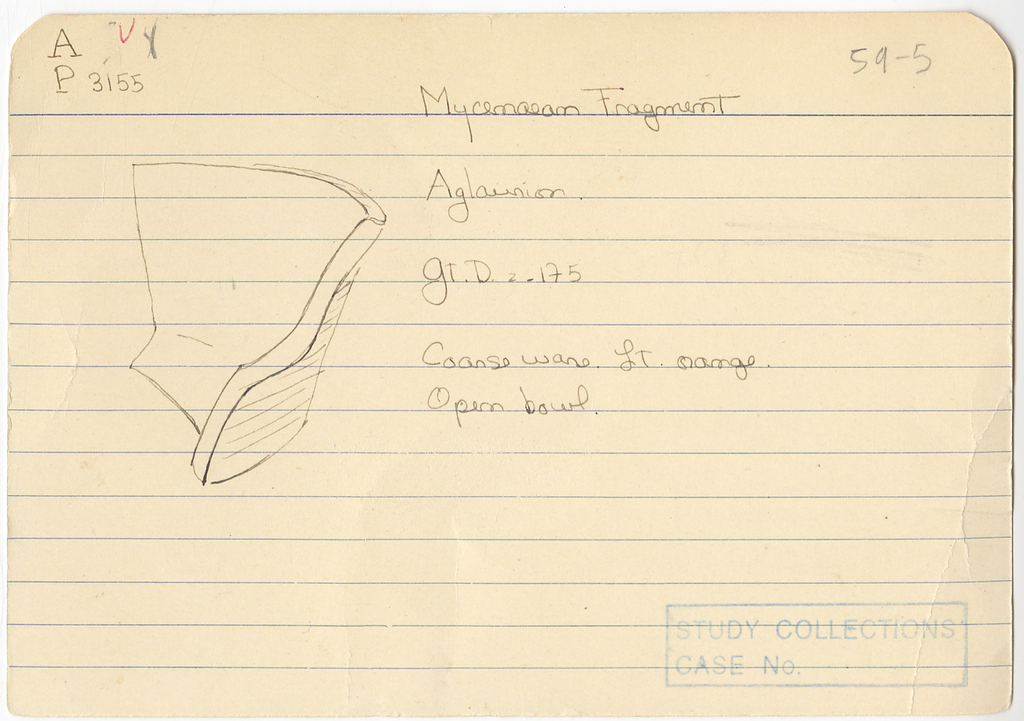 A
P 3155
59-5
Mycenaean Fragment
Aglaurion.
gt.D. 2.-175
Coarse ware. Lt. orange.
Open bowl.
STUDY COLLECTIONS
CASE No.